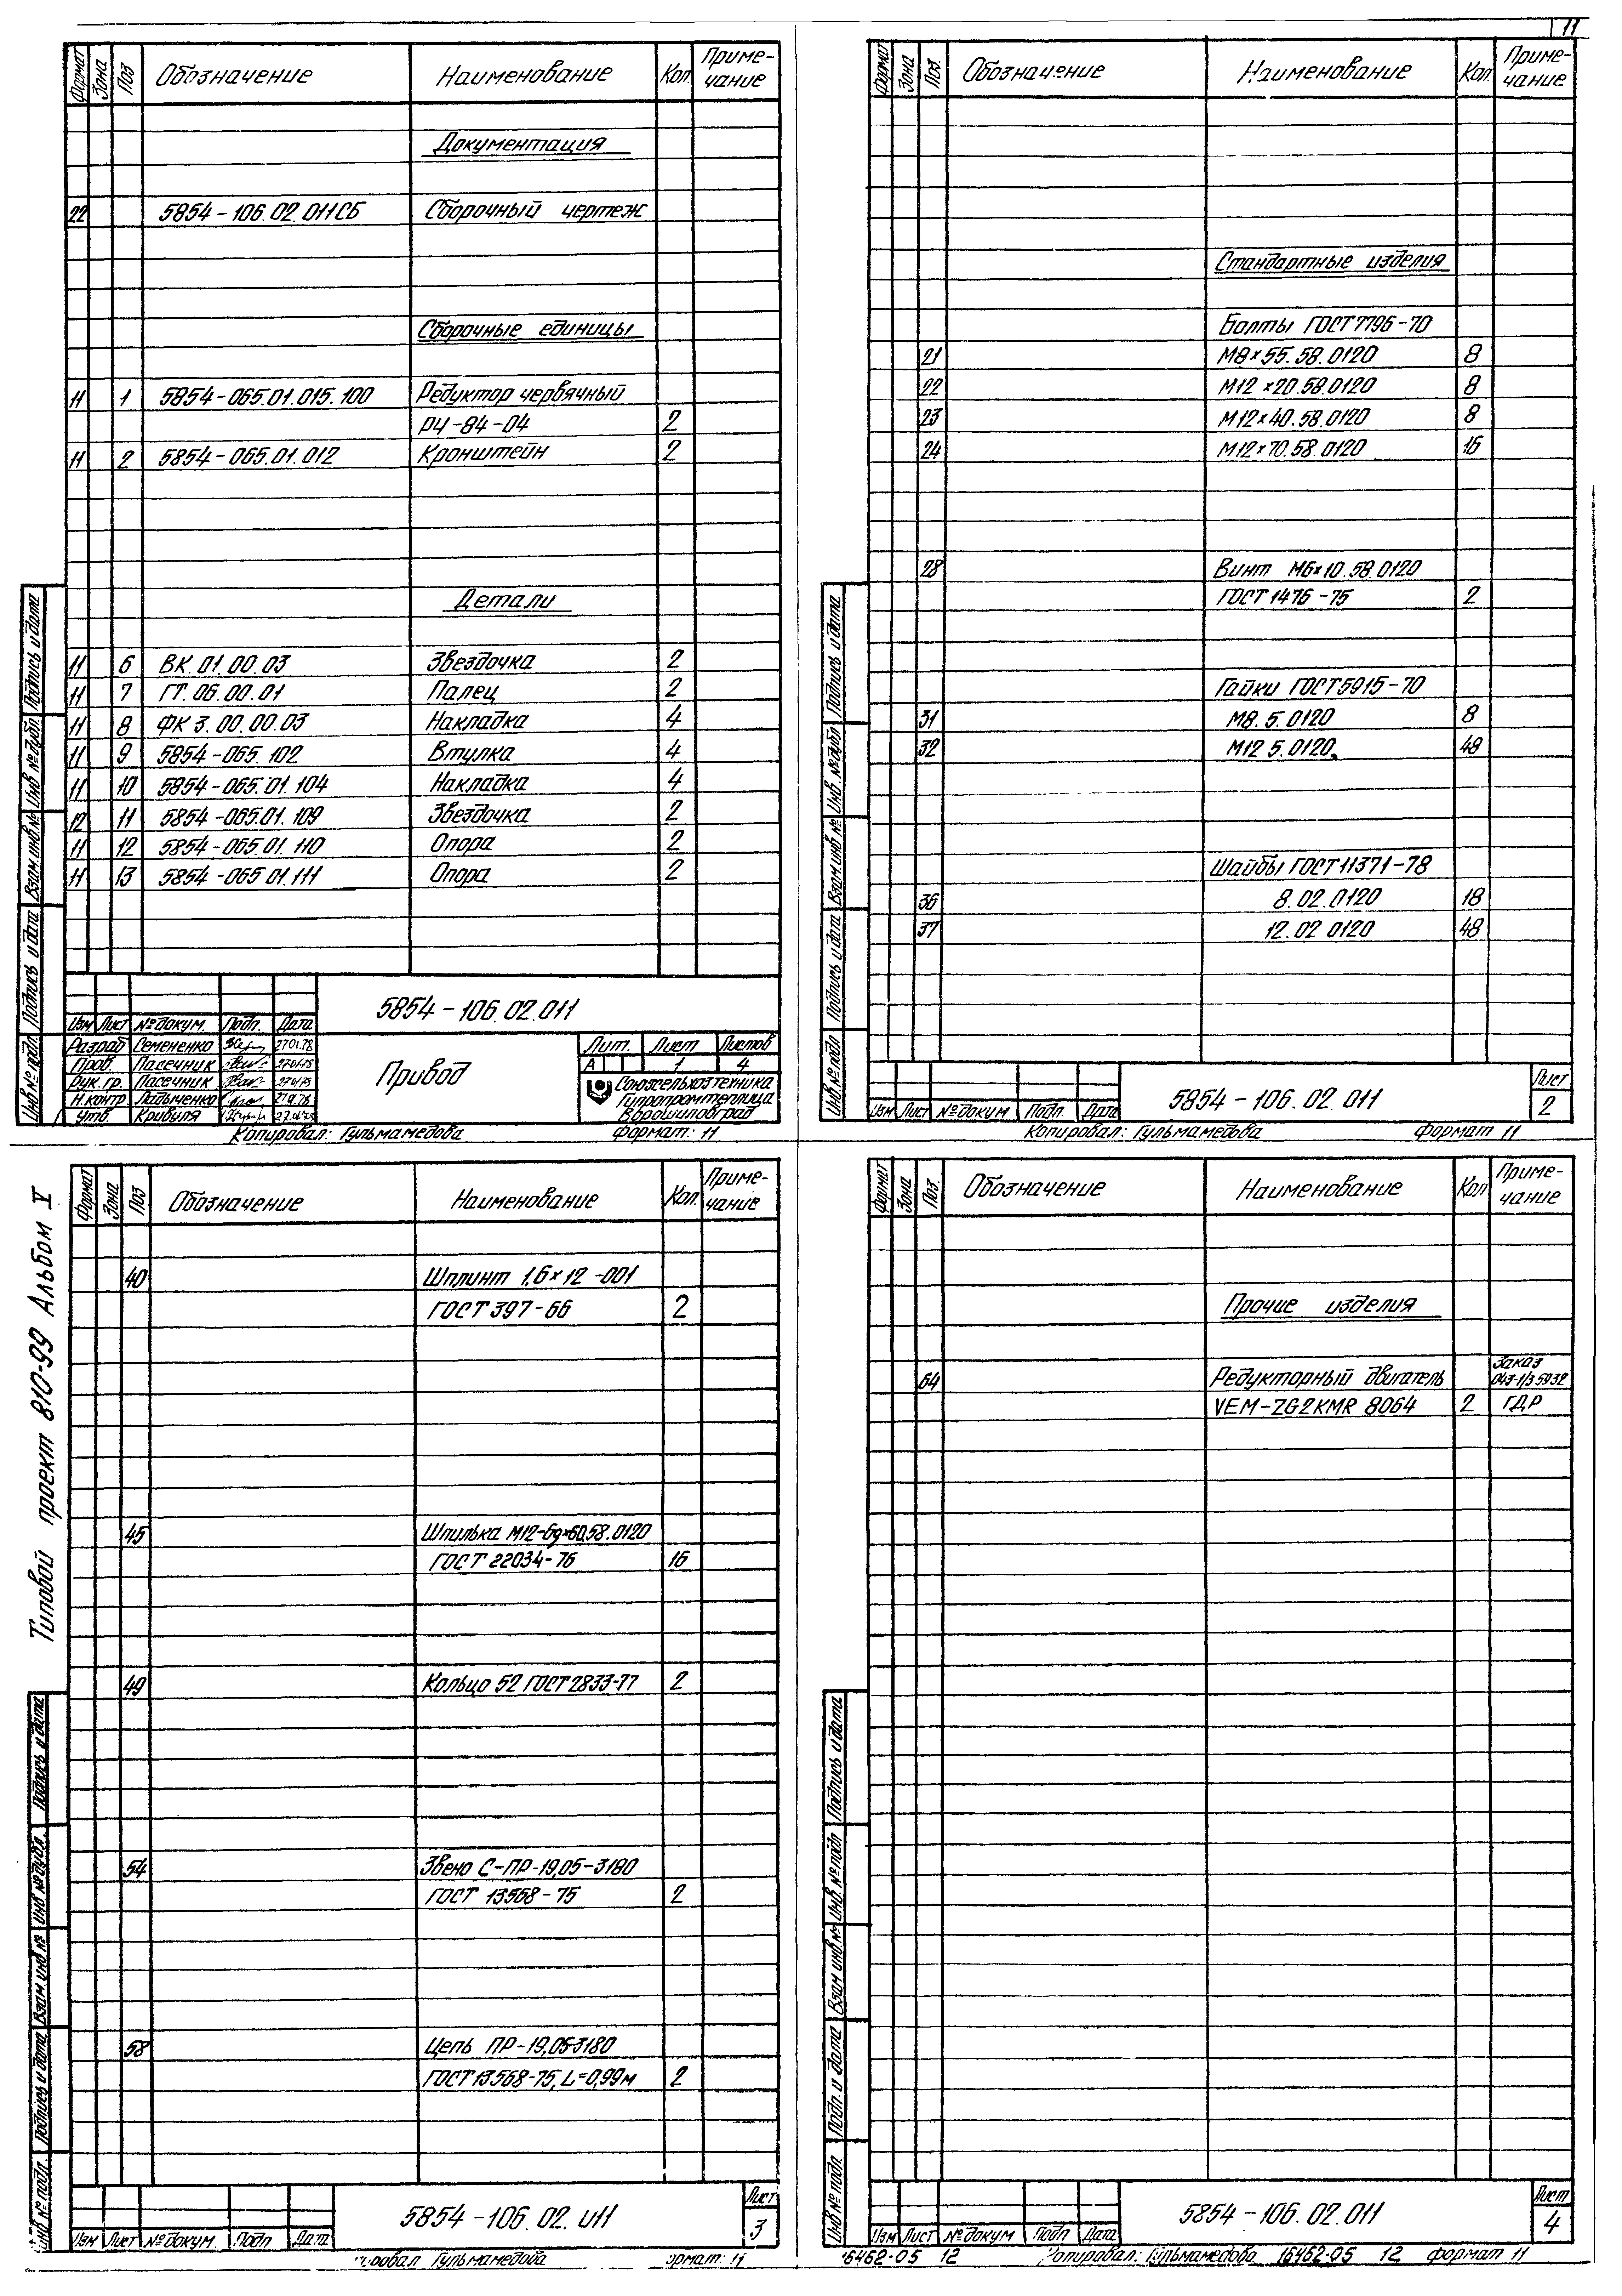 11
Формат Зона Поз Обозначение Наименование Кол. Приме-
чание
Документация
22 5854-106.02.011СБ Сборочный чертеж
Сборочные единицы
11 1 5854-065.01.015.100 Редуктор червячный
РЧ-84-04 2
11 2 5854-065.01.012 Кронштейн 2
Детали
11 6 ВК.01.00.03 Звездочка 2
11 7 ГТ.06.00.01 Палец 2
11 8 ФК 3.00.00.03 Накладка 4
11 9 5854-065.102 Втулка 4
11 10 5854-065.01.104 Накладка 4
12 11 5854-065.01.109 Звездочка 2
11 12 5854-065.01.110 Опора 2
11 13 5854-065.01.111 Опора 2
Подпись и дата
Инв № дубл.
Взам. инв №
Подпись и дата
Инв № подл
5854-106.02.011
Изм Лист № докум. Подп. Дата
Разраб Семененко 27.01.78
Пров. Пасечник
Рук. гр. Пасечник
Н.контр Ладыченко
Утв. Кривуля
Привод
Лит. Лист Листов
А 1 4
Союзсельхозтехника
Гипропромтеплица
Ворошиловград
Копировал: Гульмамедова Формат: 11
Формат Зона Поз. Обозначение Наименование Кол. Приме-
чание
Стандартные изделия
Болты ГОСТ 7796-70
21 М8×55.58.0120 8
22 М12×20.58.0120 8
23 М12×40.58.0120 8
24 М12×70.58.0120 16
28 Винт М6×10.58.0120
ГОСТ 1476-75 2
Гайки ГОСТ 5915-70
31 М8.5.0120 8
32 М12 5.0120 48
Шайбы ГОСТ 11371-78
36 8.02.0120 18
37 12.02 0120 48
Подпись и дата
Инв. № дубл
Взам. инв №
Подпись и дата
Инв. № подл
Изм Лист № докум Подп. Дата
5854-106.02.011
Лист
2
Копировал: Гульмамедова Формат 11
Типовой проект 810-99 Альбом V
Формат Зона Поз Обозначение Наименование Кол. Приме-
чание
40 Шплинт 1,6×12-001
ГОСТ 397-66 2
45 Шпилька М12-6g×60.58.0120
ГОСТ 22034-76 16
49 Кольцо 52 ГОСТ 2833-77 2
54 Звено С-ПР-19,05-3180
ГОСТ 13568-75 2
58 Цепь ПР-19,05-3180
ГОСТ 13568-75, L=0,99м 2
Подпись и дата
Инв № дубл.
Взам. инв №
Подпись и дата
Инв № подл.
Изм Лист № докум Подп Дата
5854-106.02.011
Лист
3
Гульмамедова 11
Формат Зона Поз. Обозначение Наименование Кол Приме-
чание
Прочие изделия
64 Редукторный двигатель Заказ
VEM-ZG2KMR 8064 2 ГДР
Подпись и дата
Инв. № подл
Взам инв. №
Подп. и дата
Инв № подл.
Изм Лист № докум Подп Дата
5854-106.02.011
Лист
4
16462-05 12 Копировал: Гульмамедова 16462-05 12 формат 11